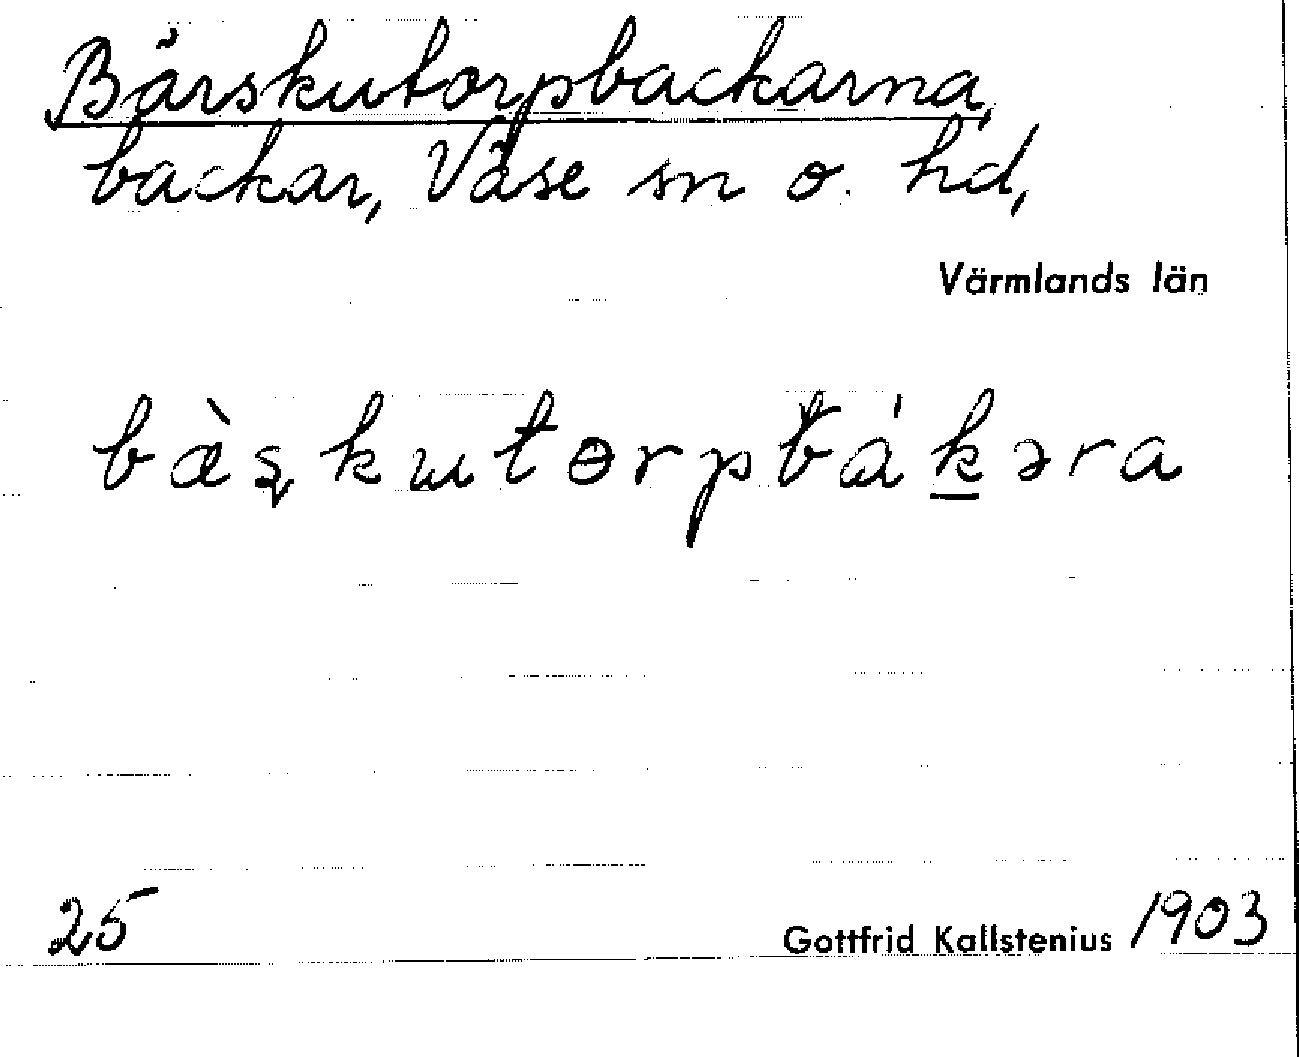 Bärskutorpbackarna,
backar, Väse sn o. hd,
Värmlands län
bæ̀ʂkutɵrpbákəra
25 Gottfrid Kallstenius 1903